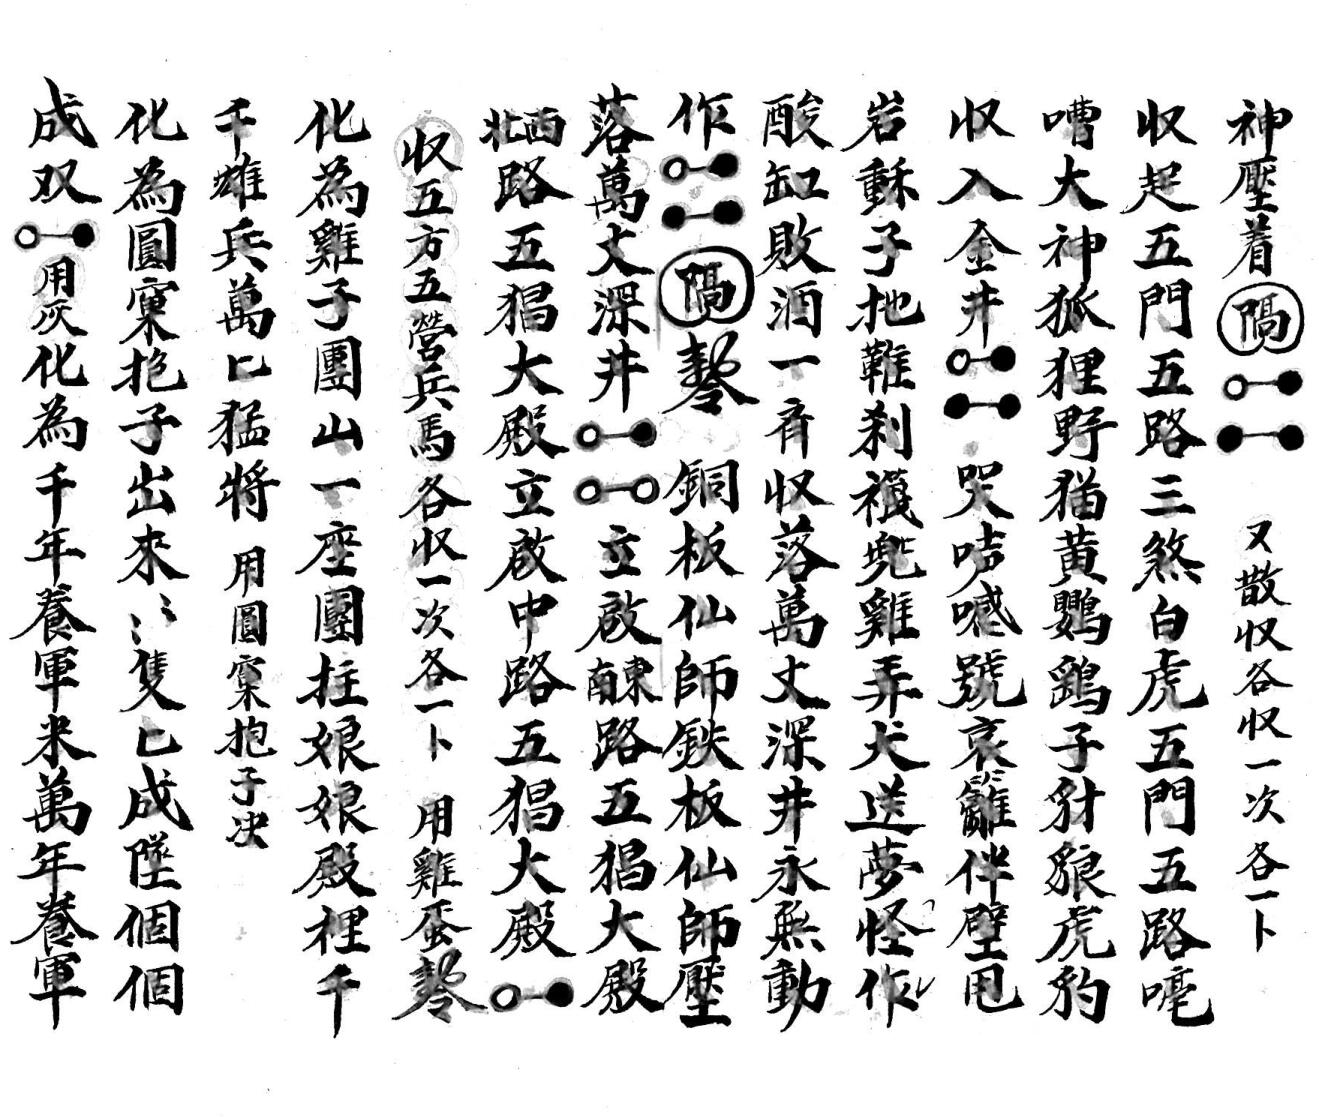 神壓着隔 又散収各収一次各一卜
収起五門五路三煞白虎五門五路嚎
嘈大神狐狸野猫黄鸚鷂子豺狼虎豹
収入金井 哭咭嘁號哀籬伴壁甩
岩穌子地難刹襪兜雞弄犬送夢怪作
酸缸敗酒一斉収落萬丈深井永無動
作 隔 銅板仙師鉄板仙師壓
落萬丈深井 立啟東南路五猖大殿
西北路五猖大殿立啟中路五猖大殿
収五方五營兵馬各収一次各一卜 用雞蛋
化為雞子團山一座團拄娘娘殿裡千
千雄兵萬匕猛將 用圓窠抱子决
化為圓窠抱子出來 隻匕成墜個個
成双 用灰化為千年養軍米萬年養軍